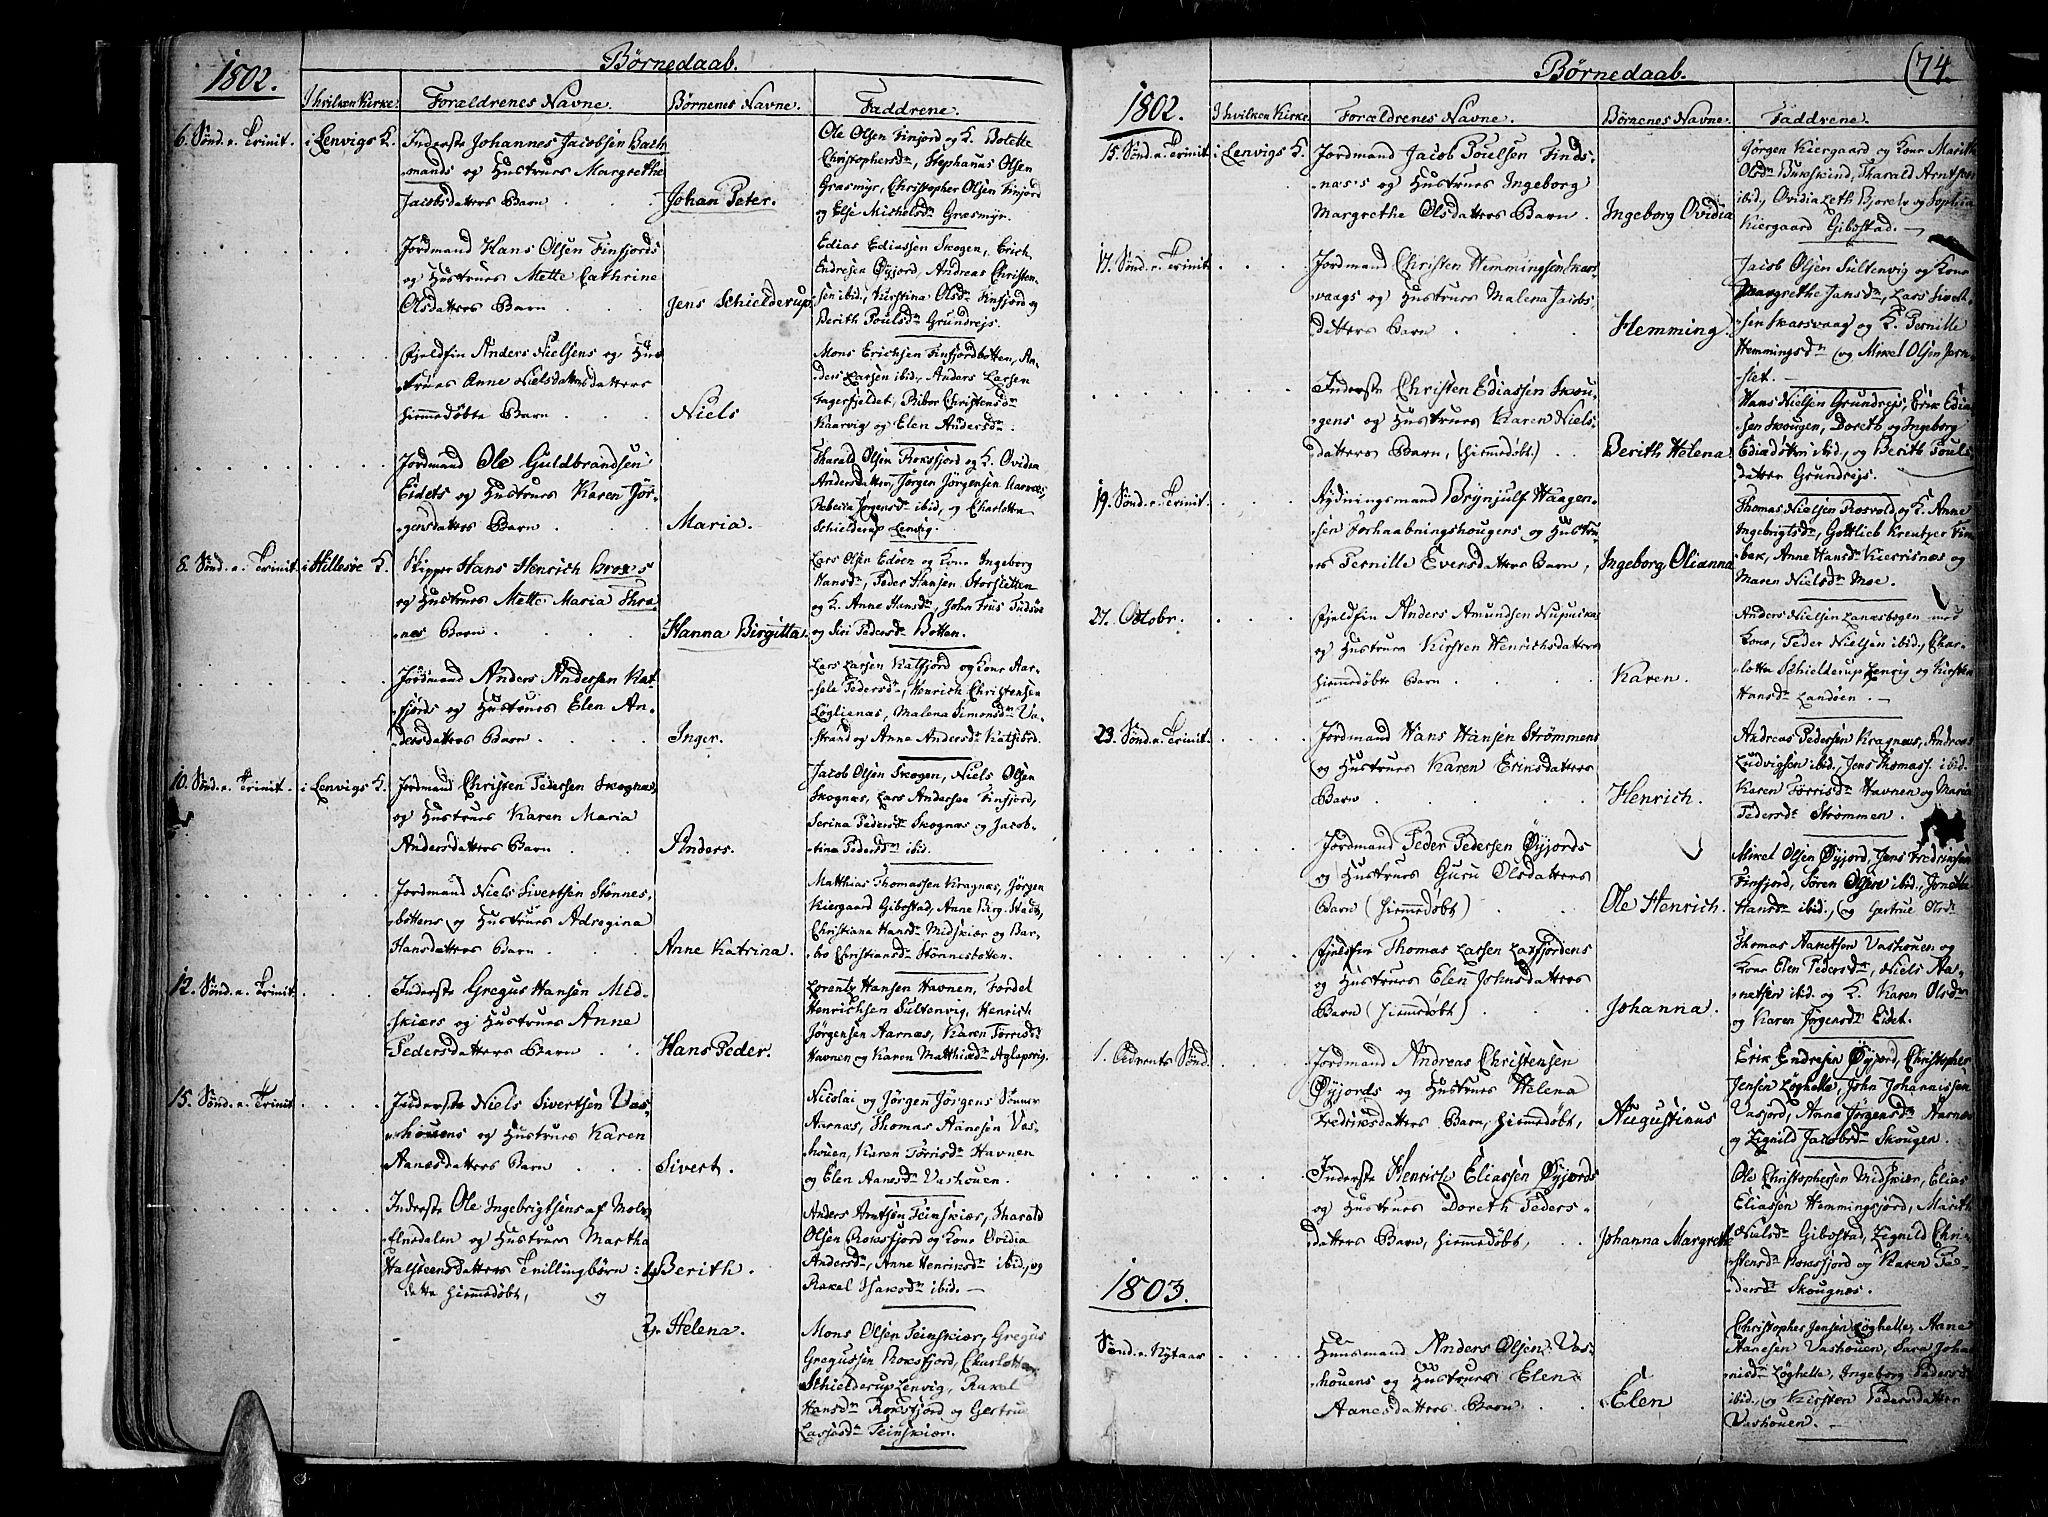 1802.
Børnedaab.
I hvilken Kirke.
Forældrenes Navne.
Børnenes Navne.
Faddrene.
6. Sønd. e. Trinit.
i Lenvigs K.
Inderste Johannes Jacobsen Bach
mands og Hustrues Margrethe
Jacobsdatters Barn
Johan Peter.
Ole Olsen Finfjord og K. Bolette
Christophersdr, Stephanus Olsen
Grasmyr, Christopher Olsen Finfjord
og Else Michelsdr Græsmyr.
Jordmand Hans Olsen Finfjords
og Hustrues Mette Cathrine
Olsdatters Barn
Jens Schielderup.
Edias Ediassen Skogen, Erich
Endresen Øyjord, Andreas Christen-
sen ibid, Kirstina Olsdr Finfjord og
Berith Poulsdr Grundrejs.
Fjeldfin Anders Nielsens og Hus
trues Anne Nielsdatters
hiemmedøbte Barn
Niels
Mons Erichsen Finfjordbotten, An-
ders Larsen ibid, Anders Larsen
Fagerfjeldet, Ribor Christensdr
Kaarvig og Elen Andersdr.
Jordmand Ole Guldbrandsen
Eidets og Hustrues Karen Jør-
gensdatters Barn
Maria.
Tharald Olsen Roksfjord og K. Ovidia
Andersdatter, Jørgen Jörgensen Aarnæs,
Rebecca Jørgensdr ibid, og Charlotta
Schielderup Lenvig.
8. Sønd. e. Trinit.
i Hillesøe K.
Skipper Hans Henrich Brox's
og Hustrues Mette Maria Thra
nes Barn
Hanna Birgitta.
Lars Olsen Edøen og Kone Ingeborg
Hansdr, Peder Hansen Storsletten
og K. Anne Hansdr, John Friis Tudsøe
og Siri Pedersdr Botten.
Jordmand Anders Andersen Kat-
fjords og Hustrues Elen An-
dersdatters Barn
Inger.
Lars Larsen Katfjord og Kone Aar-
sele Pedersdr, Henrich Christensen
Løglienæs, Malena Simonsdr Va-
strand og Anne Andersdr Katfiord.
10. Sønd. e. Trinit.
i Lenvigs K.
Jordmand Christen Pedersen Skognæs,
og Hustrues Karen Maria
Andersdatters Barn
Anders.
Jacob Olsen Skogen, Niels Olsen
Skognæs, Lars Andersen Finfjord,
Serina Pedersdr Skognæs og Jacob-
tina Pedersdr ibid.
Jordmand Niels Sivertsen Stönnes-
bottens og Hustrues Adregina
Hansdatters Barn
Anne Katrina.
Matthias Thomassen Kragnæs, Jørgen
Kiergaard Gibostad, Anne Birg. Stadt,
Christiana Hansdr Midskiær og Bar-
bro Christiansdr Stönnesbotten.
12. Sønd. e. Trinit.
Inderste Gregus Hansen Mid-
skiærs og Hustrues Anne
Pedersdatters Barn
Hans Peder.
Lorentz Hansen Havnen, Fordel
Henrichsen Sultenvig, Henrich
Jørgensen Aarnæs, Karen Torrisdr
Havnen og Karen Matthiædr Aglapsvig.
15. Sønd. e. Trinit.
Inderste Niels Sivertsen Vas-
houens og Hustrues Karen
Aanesdatters Barn
Sivert.
Nicolai og Jørgen Jörgens Sønner
Aarnæs, Thomas Aanesen Vas-
houen, Karen Torrisdr Havnen
og Elen Aanesdr Vashouen.
Inderste Ole Ingebrigtsens af Mols-
elvedalen og Hustrues Martha
Halsteensdatters Tvillingbørn:
dette hiemmedøbt, og
1, Berith.
Anders Arntsen Teinskiær, Tharald
Olsen Roksfjord og Kone Ovidia
Andersdr, Anne Henriksdr ibid, og
Rakel Isaksdr ibid.
2, Helena.
Mons Olsen Teinskiær, Gregus
Gregussen Roksfjord, Charlotta
Schielderup Lenvig, Rakel
Hansdr Roksfjord og Gertrue
Lassesdr Teinskiær.
(74.
1802.
Børnedaab.
I hvilken Kirke.
Forældrenes Navne.
Børnenes Navne.
Faddrene.
15. Sønd. e. Trinit.
i Lenvigs K.
Jordmand Jacob Poulsen Finds-
næs's og Hustrues Ingeborg
Margrethe Olsdatters Barn.
Ingeborg Ovidia
Jørgen Kiergaard og Kone Marith
Olsdr Buxskind, Tharald Arntsen
ibid, Ovidia Leth Bjorelv og Sophia
Kiergaard Gibostad.
17. Sønd. e. Trinit.
Jordmand Christen Hemmingsen Skars-
vaags og Hustrues Malena Jacobs-
datters Barn
Hemming.
Jacob Olsen Sultenvig og Kone
Margrethe Jansdr, Lars Sivert-
sen Skarsvaag og K. Pernille
Hemmingsdr og Mikel Olsen Jern-
slet.
Inderste Christen Ediassen Skou-
gens og Hustrues Karen Niels-
datters Barn, (hiemedøbt)
Berith Helena
Hans Nielsen Grundrejs, Erik Edias
sen Skougen, Doreth og Ingeborg
Ediædøttre ibid, og Berith Pouls-
datter Grundrejs.
19. Sønd. e. Trinit.
Rydningsmand Brynjulf Haagen-
sen Forhaabningshougens og Hustru
es Pernille Evensdatters Barn,
Ingeborg Olianna
Thomas Nielsen Rosvold og K. Anne
Ingebrigtsdr, Gottlieb Kreutzer Fin
bak, Anne Hansdr Kierrisnæs og
Maren Nielsdr Moe.
27. Octobr.
Fjeldfin Anders Amundsen Nupuiska
og Hustrues Kirsten Henrichsdatters
hiemedøbte Barn
Karen.
Anders Nielsen Lanæsbogen med
Kone, Peder Nielsen ibid, Char-
lotta Schielderup Lenvig og Kirsten
Hansdr Landøen.
23. Sønd. e. Trinit.
Jordmand Hans Hansen Strømmens
og Hustrues Karen Eriksdatters
Barn
Henrich.
Andreas Pedersen Kragnæs, Andreas
Ludvigsen ibid, Jens Thomass. ibid.
Karen Torrisdr Havnen og Maria
Pedersdr Strømmen.
Jordmand Peder Pedersen Øyjords
og Hustrues Guru Olsdatters
Barn (hiemmedøbt)
Ole Henrich.
Mikel Olsen Øyjord, Jens Fredriksen
Finfjord, Søren Olsen ibid, Jonetta
Hansdr ibid, og Gertrue Olsdr
Fjeldfin Thomas Larsen Laxfjordens
og Hustrues Elen Johnsdatters
Barn (hiemmedøbt)
Johanna.
Thomas Aanetsen Vashouen og
Kone Elen Pedersdr, Niels Aa-
netsen ibid. og K. Karen Olsdr
og Karen Jørgensdr Eidet.
1. Advents Sønd.
Jordmand Andreas Christensen
Øyjords og Hustrues Helena
Fredriksdatters Barn, hiemedøbt,
Augustinus
Erik Endresen Øyjord, Christopher
Jensen Løghelle, John Johannissen
Vasjord, Anne Jørgensdr Aarnæs
og Zignild Jacobsdr Skougen.
Inderste Henrich Eliassen Øyjords
og Hustrues Doreth Peders-
datters Barn, hiemedøbt,
Johanna Margrethe
Ole Christophersen Midskiær, Elias
Eliassen Hemmingsjord, Marith
Nielsdr Gibostad, Zignild Chri-
stensdr Roksfjord og Karen Pe-
dersdr Skougnæs.
1803.
Sønd. e. Nytaar
Huusmand Anders Olsen Vas-
houens og Hustrues Elen
Aanesdatters Barn.
Elen
Christopher Jensen Løghelle, Aane
Aanesen Vashouen, Sara Joha
nisdr Løghelle, Ingeborg Pedersdr
ibid, og Kirsten Pedersdatter
Vashouen.